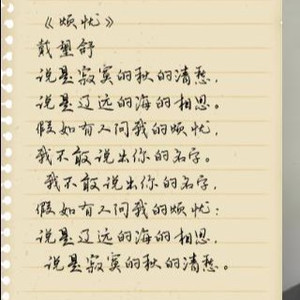 《烦忧》
戴望舒
说是寂寞的秋的清愁，
说是辽远的海的相思。
假如有人问我的烦忧，
我不敢说出你的名字。
我不敢说出你的名字，
假如有人问我的烦忧：
说是辽远的海的相思，
说是寂寞的秋的清愁。